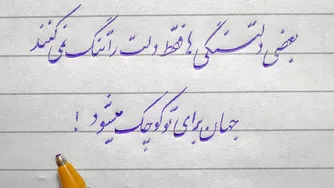 بعضی دلتنگی ها فقط دلت را تنگ نمی کنند
جهان برای تو کوچک میشود !